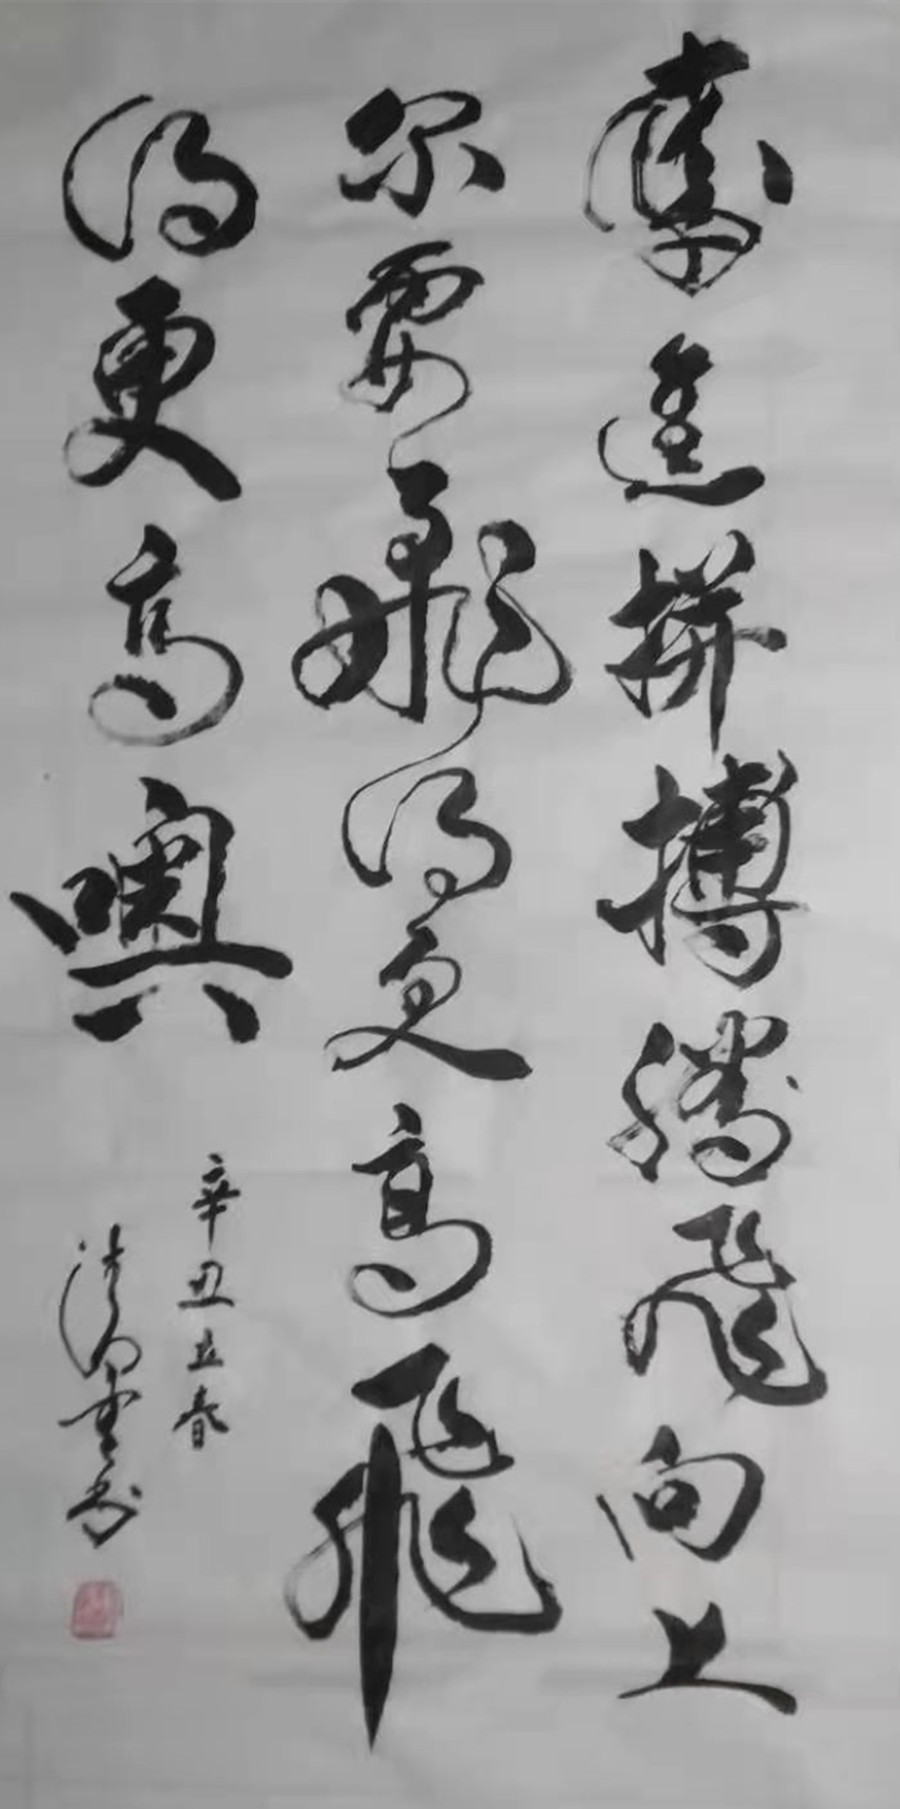 奮進拼搏騰飛向上
尔要飛得更高飛
得更高噢
辛丑立春
书